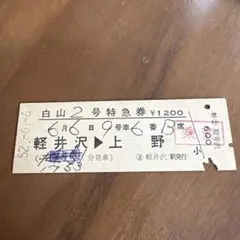 白山2号特急券 ¥1200
6月6日9号車6番B席
軽井沢▶上野
分発車)
1753
③ 軽井沢 駅発行
小
600
52.-6.-6